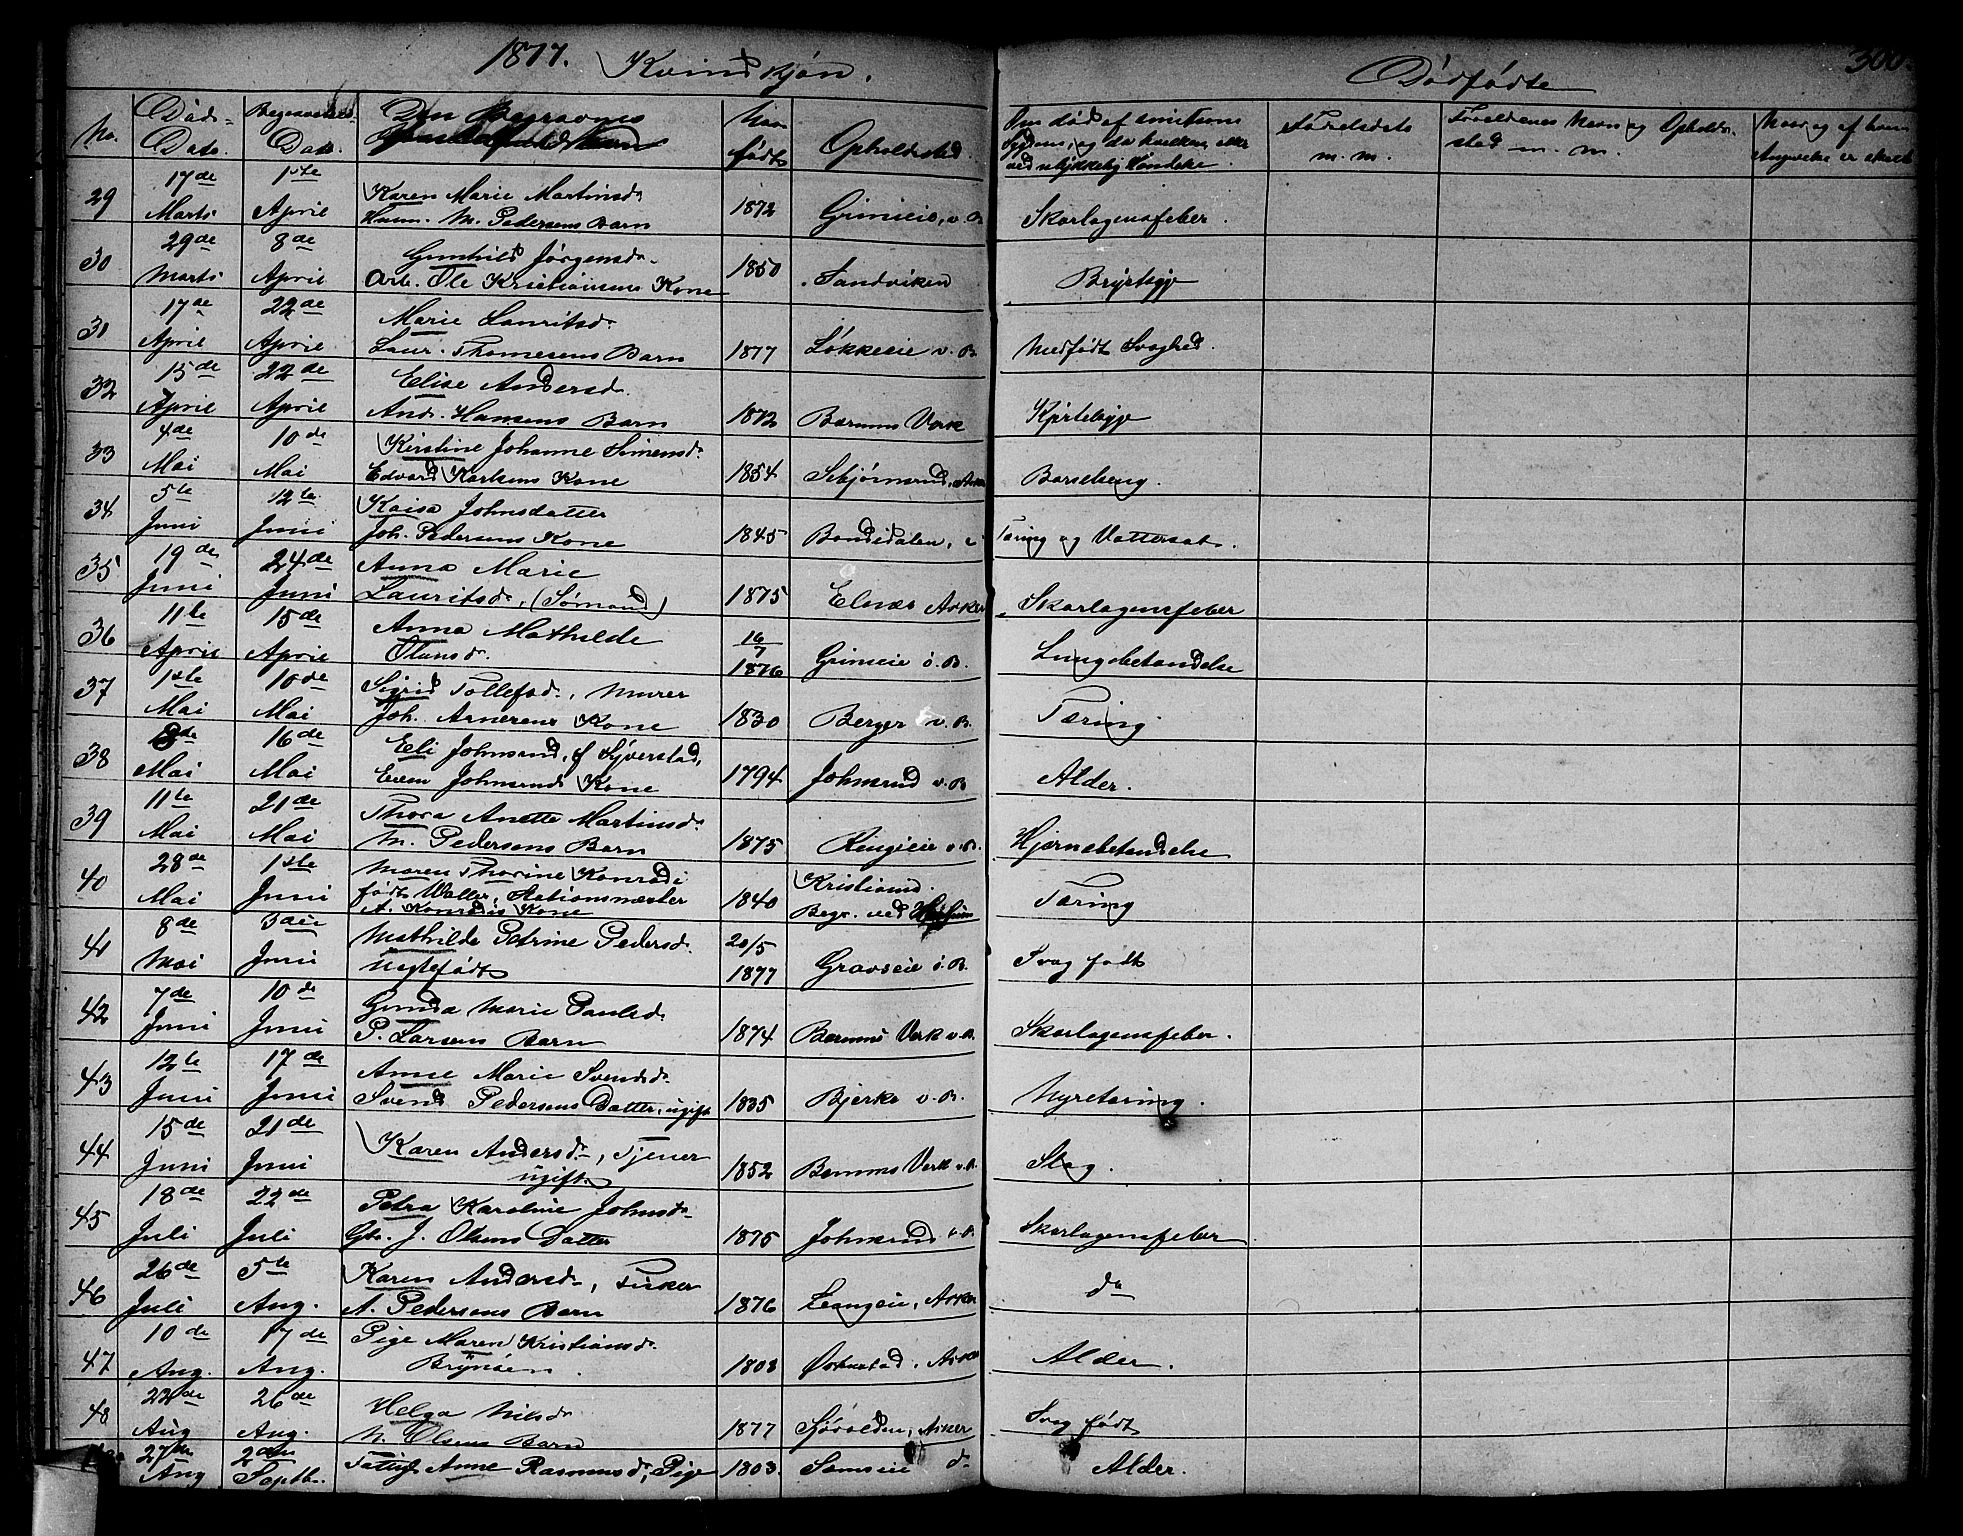 1877. Kvindkjøn.
Dødfødte
300.
No.
Død-
Dato.
Begravelses
Dato.
Den Begravnes
Naar
født
Opholdssted.
Om død af smitsom
Sygdom, og da hvilken, eller
ved ulykkelig Hændelse.
Fødselsdato
m. m.
Forældrenes Navn og Opholds-
sted m. m.
29 17de Marts 1ste April Karen Marie Martinsd.
M. Pedersens Barn 1872 Grinieie, v. B. Skarlagensfeber.
30 29de Marts 8de April Gunhild Jørgensd.
Arb. Ole Kristiansens Kone 1850 Sandviken Brystsyge
31 17de April 22de April Marie Lauritsd.
Laur. Thomesens Barn 1877 Løkkeeie v. B. Medfødt Svaghed.
32 15de April 22de April Elise Andersd.
And. Hansens Barn 1872 Bærums Verk Kjertelsyge
33 4de Mai 10de Mai Kirstine Johanne Simensd.
Edvard Karlsens Kone 1854 Sebjørnsrud, Asker Barselseng.
34 5te Juni 12te Juni Kaisa Johnsdatter
Joh. Pedersens Kone 1845 Bondidalen, Tæring og Vattersot.
35 19de Juni 24de Juni Anna Marie
Lauritsd., (Sømand) 1875 Elnæs Asker Skarlagensfeber
36 11te April 15de April Anna Mathilde
Olausd. 16/7 1876 Grinieie ø. B. Lungebetændelse
37 1ste Mai 10de Mai Sigrid Tollefsd., Murer
Joh. Arnesens Kone 1830 Berger v. B. Tæring.
38 8de Mai 16de Mai Eli Johnsrud, f Syverstad,
Even Johnsruds Kone 1794 Johnsrud v. B. Alder.
39 11te Mai 21de Mai Thora Anette Martinsd.
M. Pedersens Barn 1875 Ringieie v. B. Hjernebetændelse
40 28de Mai 1ste Juni Maren Thorine Konradi
født Waller, Stationsmester
A. Konradis Kone 1840 Kristiania.
Begr. ved Tæring
41 8de Mai 3die Juni Mathilde Petrine Pedersd.
Uegtefødt 20/5 1877 Gravseie ø. B. Svag født
42 7de Juni 10de Juni Gunda Marie Paulsd.
P. Larsens Barn 1874 Bærums Verk v. B. Skarlagensfeber.
43 12te Juni 17de Juni Anne Marie Svendsd.
Svend Pedersens Datter, ugift 1835 Bjerke v. B. Nyretæring.
44 15de Juni 21de Juni Karen Andersd., Tjener
ugift 1852 Bærums Verk v. B. Slag.
45 18de Juli 22de Juli Petra Karoline Johnsd.
Gbr. J. Olsens Datter 1875 Johnsrud v. B. Skarlagensfeber
46 26de Juli 5te Aug. Karen Andersd., Fisker
A. Pedersens Barn 1876 Leangeie, Asker do
47 10de Aug. 17de Aug. Pige Maren Kristiansd.
Brynsen. 1803 Asker Alder.
48 22de Aug 26de Aug. Helga Nilsd.
N. Olsens Barn 1877 Sjøvolden, Asker Svag født
27de Aug 2den Septb. Fattigl. Anne Rasmusd., Pige 1803. Semseie do Alder.